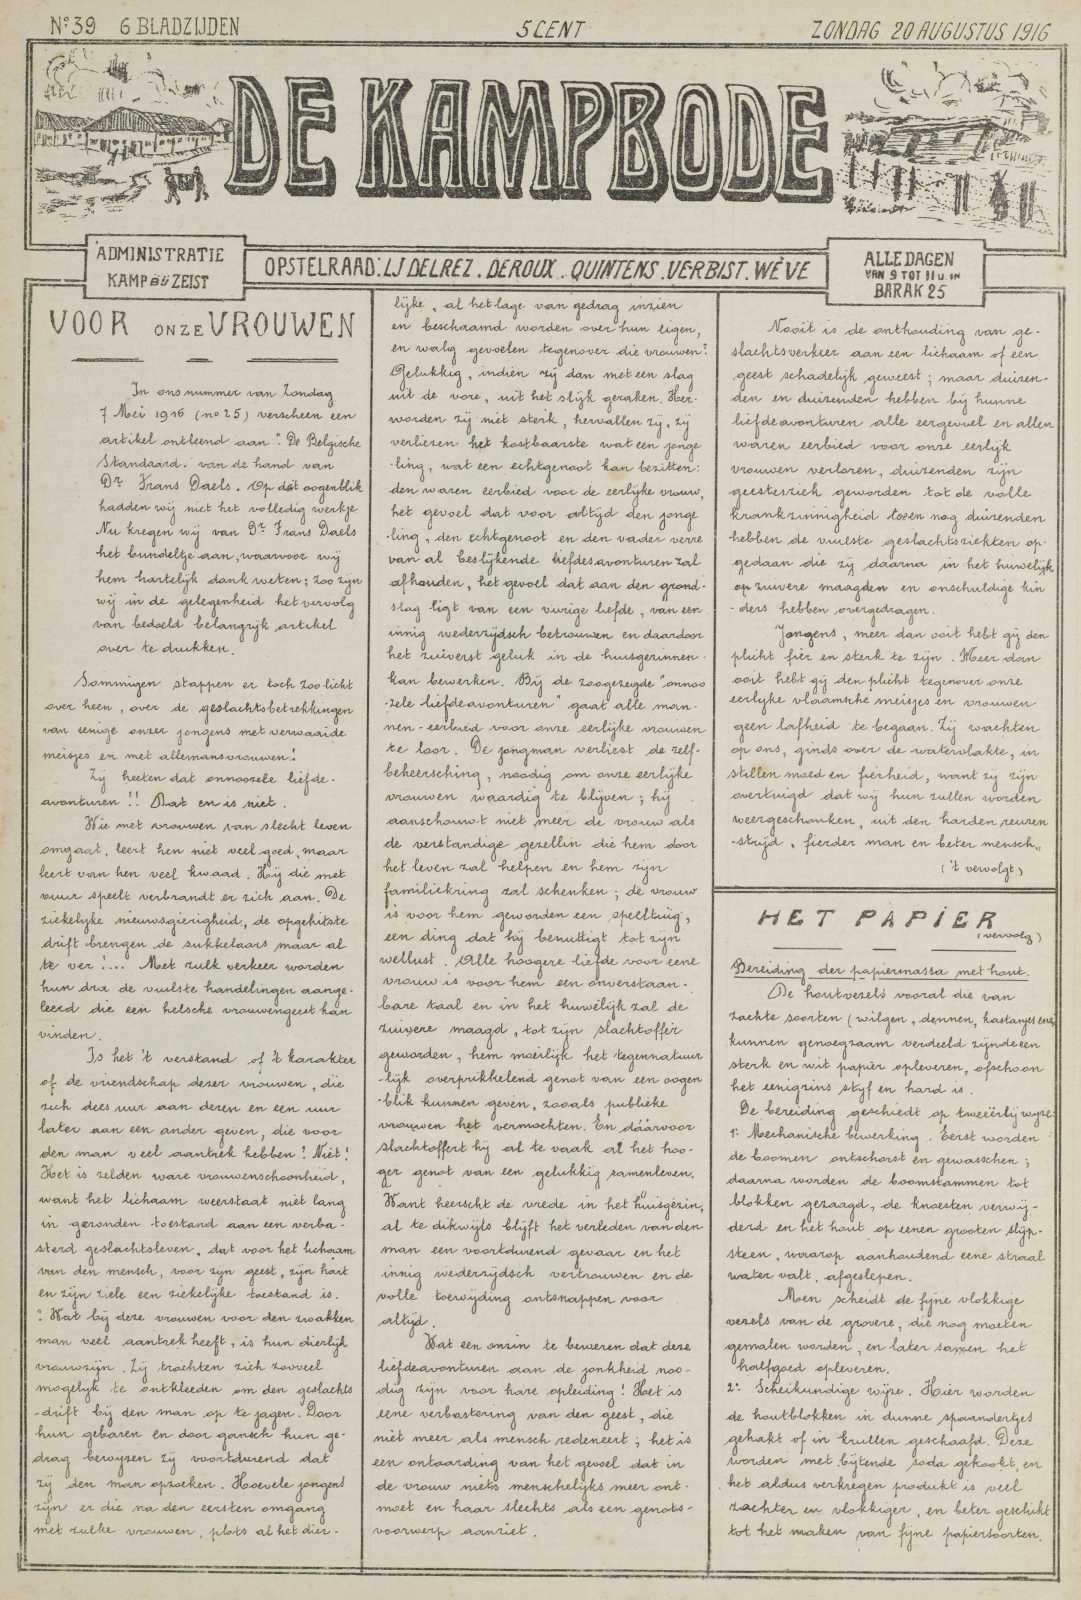 No 39 6 BLADZIJDEN
5 CENT
ZONDAG 20 AUGUSTUS 1916
DE KAMPBODE
ADMINISTRATIE
KAMP BIJ ZEIST
OPSTELRAAD: LJ DELREZ. DEROUX. QUINTENS. VERBIST. WÈVE
ALLE DAGEN
VAN 9 TOT 11 U. IN
BARAK 25
VOOR ONZE VROUWEN
In ons nummer van Zondag
7 Mei 1916 (no 25) verscheen een
artikel ontleend aan "De Belgische
Standaard" van de hand van
Dr Frans Daels. Op dat oogenblik
hadden wij niet het volledig werkje
Nu kregen wij van Dr Frans Daels
het bundeltje aan, waarvoor wij
hem hartelijk dank weten; zoo zijn
wij in de gelegenheid het vervolg
van bedoeld belangrijk artikel
over te drukken.
Sommigen stappen er toch zoo licht
over heen, over de geslachtsbetrekkingen
van eenige onzer jongens met verwaaide
meisjes en met allemansvrouwen!
Zij heeten dat onnoozele liefde-
avonturen!! Dat en is niet.
Wie met vrouwen van slecht leven
omgaat, leert hen niet veel goed, maar
leert van hen veel kwaad. Hij die met
vuur speelt verbrandt er zich aan. De
ziekelijke nieuwsgierigheid, de opgehitste
drift brengen de sukkelaars maar al
te ver!... Met zulk verkeer worden
hun dra de vuilste handelingen aange-
leerd die een helsche vrouwengeest kan
vinden.
Is het 't verstand of 't karakter
of de vriendschap dezer vrouwen, die
zich dees uur aan dezen en een uur
later aan een ander geven, die voor
den man veel aantrek hebben? Niet!
Het is zelden ware vrouwenschoonheid,
want het lichaam weerstaat niet lang
in gezonden toestand aan een verba-
sterd geslachtsleven, dat voor het lichaam
van den mensch, voor zijn geest, zijn hart
en zijn ziele een ziekelijke toestand is.
: Wat bij deze vrouwen voor den zwakken
man veel aantrek heeft, is hun dierlijk
vrouwzijn. Zij trachten zich zooveel
mogelijk te ontkleeden om den geslachts
-drift bij den man op te jagen. Door
hun gebaren en door gansch hun ge-
drag bewijzen zij voortdurend dat
zij den man opzoeken. Hoevele jongens
zijn er die na den eersten omgang
met zulke vrouwen, plots al het dier-
lijke, al het lage van gedrag inzien
en beschaamd worden over hun eigen,
en walg gevoelen tegenover die vrouwen?
Gelukkig, indien zij dan met een slag
uit de vore, uit het slijk geraken. Her-
worden zij niet sterk, hervallen zij, zij
verliezen het kostbaarste wat een jonge
-ling, wat een echtgenoot kan bezitten:
den waren eerbied voor de eerlijke vrouw,
het gevoel dat voor altijd den jonge
-ling, den echtgenoot en den vader verre
van al bezlijkende liefdesavonturen zal
afhouden, het gevoel dat aan den grond-
slag ligt van een vurige liefde, van een
innig wederzijdsch betrouwen en daardoor
het zuiverst geluk in de huisgezinnen
kan bewerken. Bij de zoogezegde "onnoo
zele liefdeavonturen" gaat alle man-
nen-eerbied voor onze eerlijke vrouwen
te loor. De jongman verliest de zelf-
beheersching, noodig om onze eerlijke
vrouwen waardig te blijven; hij
aanschouwt niet meer de vrouw als
de verstandige gezellin die hem door
het leven zal helpen en hem zijn
familiekring zal schenken; de vrouw
is voor hem geworden een speeltuig,
een ding dat hij benuttigt tot zijn
wellust. Alle hoogere liefde voor eene
vrouw is voor hem een onverstaan-
bare taal en in het huwelijk zal de
zuivere maagd, tot zijn slachtoffer
geworden, hem moeilijk het tegennatuur
-lijk overprikkelend genot van een oogen
-blik kunnen geven, zooals publieke
vrouwen het vermochten. En dáárvoor
slachtoffert hij al te vaak al het hoo-
ger genot van een gelukkig samenleven.
Want heerscht de vrede in het huisgezin,
al te dikwijls blijft het verleden van den
man een voortdurend gevaar en het
innig wederzijdsch vertrouwen en de
volle toewijding ontsnappen voor
altijd.
Wat een onzin te beweren dat deze
liefdeavonturen aan de jonkheid noo-
dig zijn voor hare opleiding! Het is
eene verbastering van den geest, die
niet meer als mensch redeneert; het is
een ontaarding van het gevoel dat in
de vrouw niets menschelijks meer ont-
moet en haar slechts als een genots-
voorwerp aanziet.
Nooit is de onthouding van ge-
slachtsverkeer aan een lichaam of een
geest schadelijk geweest; maar duizen-
den en duizenden hebben bij hunne
liefdeavonturen alle eergevoel en allen
waren eerbied voor onze eerlijk
vrouwen verloren, duizenden zijn
geestesziek geworden tot de volle
krankzinnigheid toe en nog duizenden
hebben de vuilste geslachtsziekten op-
gedaan die zij daarna in het huwelijk
op zuivere maagden en onschuldige kin
-ders hebben overgedragen.
Jongens, meer dan ooit hebt gij den
plicht fier en sterk te zijn. Meer dan
ooit hebt gij den plicht tegenover onze
eerlijke vlaamsche meisjes en vrouwen
geen lafheid te begaan. Zij wachten
op ons, ginds over de watervlakte, in
stillen moed en fierheid, want zij zijn
overtuigd dat wij hun zullen worden
weergeschonken, uit den harden reuzen
-strijd, fierder man en beter mensch„
('t vervolgt)
HET PAPIER
(vervolg)
Bereiding der papiermassa met hout.
De houtvezels vooral die van
zachte soorten (wilgen, dennen, kastanjes enz)
kunnen genoegzaam verdeeld zijnde een
sterk en wit papier opleveren, ofschoon
het eenigzins styf en hard is.
De bereiding geschiedt op tweeërlij wyze:
1: Mechanische bewerking. Eerst worden
de boomen ontschorst en gewasschen;
daarna worden de boomstammen tot
blokken gezaagd, de knoesten verwij-
derd en het hout op eenen grooten slijp-
steen, waarop aanhoudend eene straal
water valt, afgeslepen.
Men scheidt de fijne vlokkige
vezels van de grovere, die nog moeten
gemalen worden, en later samen het
halfgoed opleveren.
2: Scheikundige wijze. Hier worden
de houtblokken in dunne spaandertjes
gehakt of in krullen geschaafd. Deze
worden met bijtende soda gekookt, en
het aldus verkregen produkt is veel
zachter en vlokkiger, en beter geschikt
tot het maken van fijne papiersoorten.